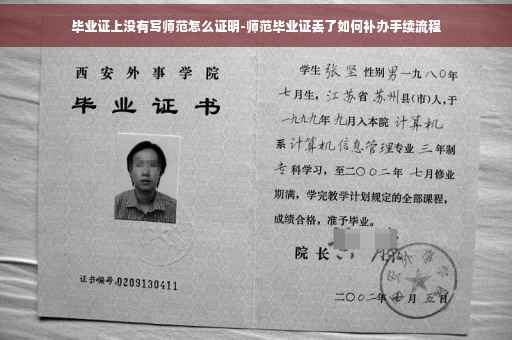 毕业证上没有写师范怎么证明-师范毕业证丢了如何补办手续流程
西安外事学院
毕业证书
证书编号:0209130411
学生张坚性别男一九八〇年
七月生，江苏省苏州县(市)人,于
一九九九年九月入本院计算机
系计算机信息管理专业三年制
专科学习，至二〇〇二年七月修业
期满，学完教学计划规定的全部课程，
成绩合格，准予毕业。
院长
二〇〇二年七月五日